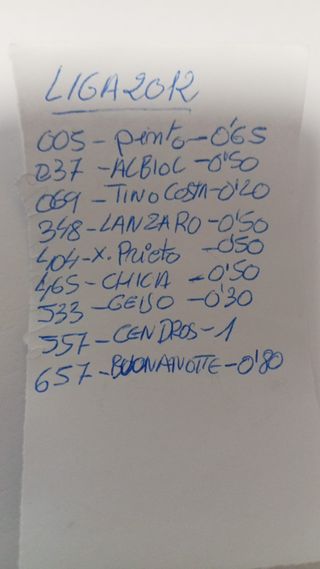 LIGA 2012
005 - Pinto - 0'65
037 - ALBIOL - 0'50
069 - TINO COSTA - 0'20
348 - LANZARO - 0'50
404 - X. Prieto - 0'50
465 - CHICA - 0'50
533 - GEIJO - 0'30
557 - CENDROS - 1
657 - BUONANOTTE - 0'80